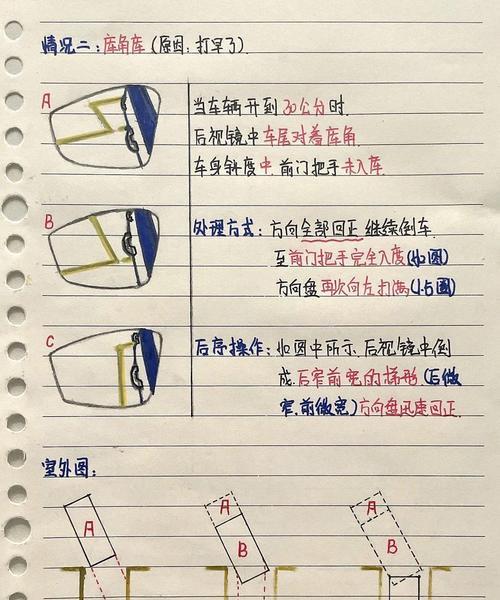 情况二：库角库（原因：打早了）
A
当车辆开到30公分时.
后视镜中车尾对着库角.
车身斜度中.前门把手未入库.
B
处理方式：方向全部回正.继续倒车.
至前门把手完全入库(如图)
方向盘再次向左打满(1.5圈)
C
后序操作：如图中所示.后视镜中倒
成.后窄前宽的梯形.(后微
窄.前微宽)方向盘迅速回正.
室外图：
A
A
B
A
B